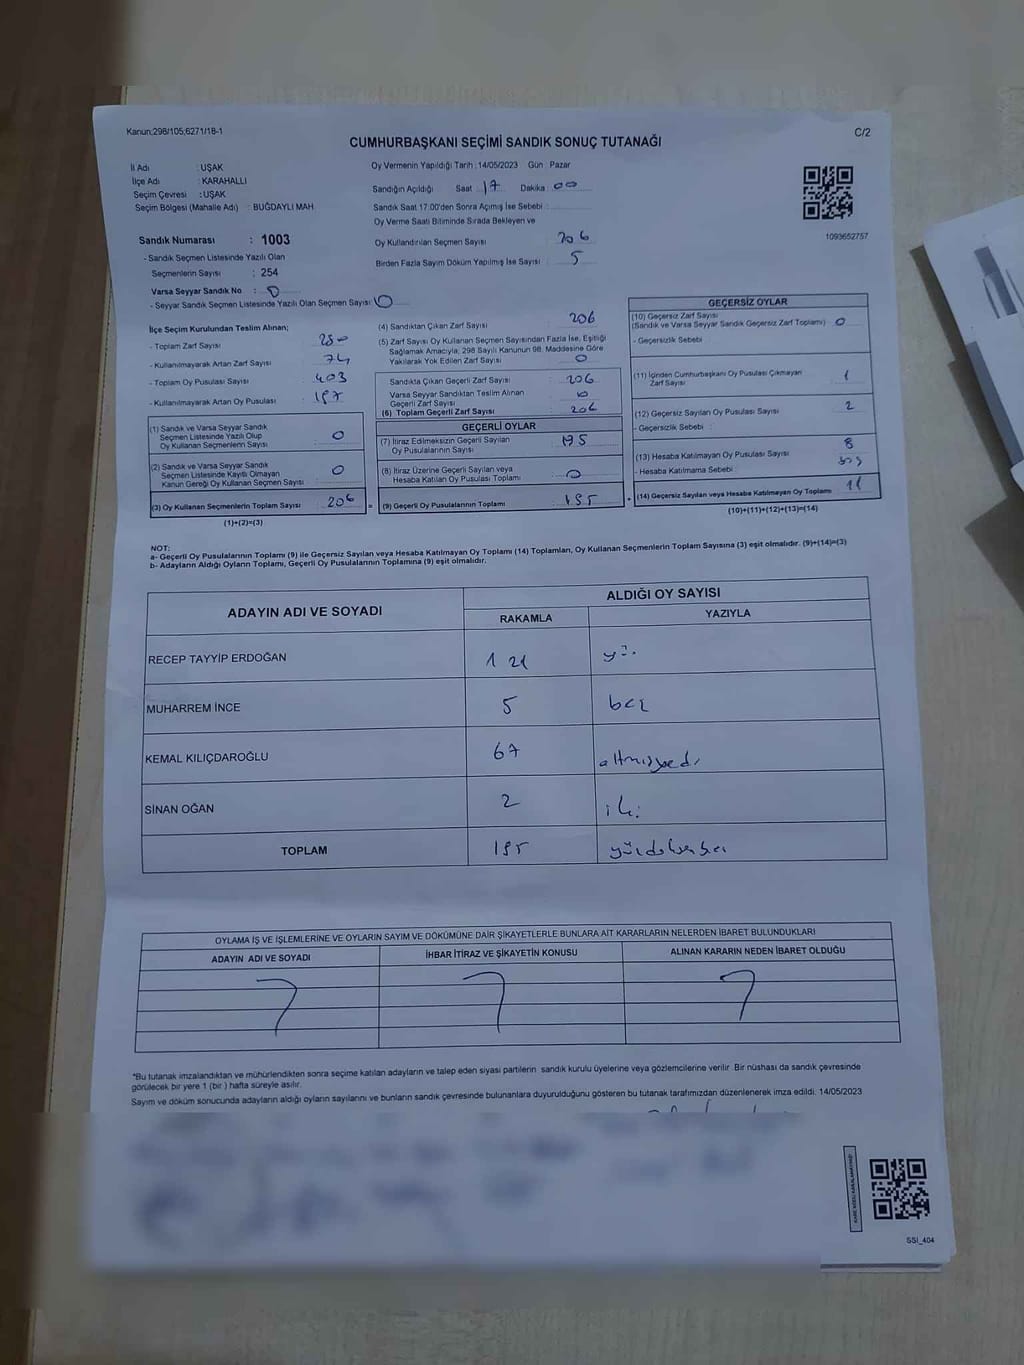 Kanun;298/105;6271/18-1
C/2
CUMHURBAŞKANI SEÇİMİ SANDIK SONUÇ TUTANAĞI
İl Adı : UŞAK
İlçe Adı : KARAHALLI
Seçim Çevresi : UŞAK
Seçim Bölgesi (Mahalle Adı) : BUĞDAYLI MAH.
Oy Vermenin Yapıldığı Tarih : 14/05/2023 Gün : Pazar
Sandığın Açıldığı Saat 17 Dakika 00
Sandık Saat 17:00'den Sonra Açımış İse Sebebi :
Oy Verme Saati Bitiminde Sırada Bekleyen ve
Oy Kullandırılan Seçmen Sayısı 206
Birden Fazla Sayım Döküm Yapılmış İse Sayısı : 5
1093652757
Sandık Numarası : 1003
- Sandık Seçmen Listesinde Yazılı Olan
Seçmenlerin Sayısı : 254
Varsa Seyyar Sandık No : 0
- Seyyar Sandık Seçmen Listesinde Yazılı Olan Seçmen Sayısı 0
İlçe Seçim Kurulundan Teslim Alınan;
- Toplam Zarf Sayısı :
- Kullanılmayarak Artan Zarf Sayısı : 74
- Toplam Oy Pusulası Sayısı : 403
- Kullanılmayarak Artan Oy Pusulası : 197
(1) Sandık ve Varsa Seyyar Sandık
Seçmen Listesinde Yazılı Olup
Oy Kullanan Seçmenlerin Sayısı : 0
(2) Sandık ve Varsa Seyyar Sandık
Seçmen Listesinde Kayıtlı Olmayan
Kanun Gereği Oy Kullanan Seçmen Sayısı : 0
(3) Oy Kullanan Seçmenlerin Toplam Sayısı : 206
(1)+(2)=(3)
(4) Sandıktan Çıkan Zarf Sayısı : 206
(5) Zarf Sayısı Oy Kullanan Seçmen Sayısından Fazla İse, Eşitliği
Sağlamak Amacıyla; 298 Sayılı Kanunun 98. Maddesine Göre
Yakılarak Yok Edilen Zarf Sayısı : 0
Sandıkta Çıkan Geçerli Zarf Sayısı : 206
Varsa Seyyar Sandıktan Teslim Alınan
Geçerli Zarf Sayısı :
(6) Toplam Geçerli Zarf Sayısı : 206
GEÇERLİ OYLAR
(7) İtiraz Edilmeksizin Geçerli Sayılan
Oy Pusulalarının Sayısı : 195
(8) İtiraz Üzerine Geçerli Sayılan veya
Hesaba Katılan Oy Pusulası Toplamı : 0
= (9) Geçerli Oy Pusulalarının Toplamı : 195
GEÇERSİZ OYLAR
(10) Geçersiz Zarf Sayısı
(Sandık ve Varsa Seyyar Sandık Geçersiz Zarf Toplamı) : 0
- Geçersizlik Sebebi :
(11) İçinden Cumhurbaşkanı Oy Pusulası Çıkmayan
Zarf Sayısı : 1
(12) Geçersiz Sayılan Oy Pusulası Sayısı : 2
- Geçersizlik Sebebi :
(13) Hesaba Katılmayan Oy Pusulası Sayısı : 8
- Hesaba Katılmama Sebebi :
+ (14) Geçersiz Sayılan veya Hesaba Katılmayan Oy Toplamı : 11
(10)+(11)+(12)+(13)=(14)
NOT:
a- Geçerli Oy Pusulalarının Toplamı (9) ile Geçersiz Sayılan veya Hesaba Katılmayan Oy Toplamı (14) Toplamları, Oy Kullanan Seçmenlerin Toplam Sayısına (3) eşit olmalıdır. (9)+(14)=(3)
b- Adayların Aldığı Oyların Toplamı, Geçerli Oy Pusulalarının Toplamına (9) eşit olmalıdır.
ADAYIN ADI VE SOYADI ALDIĞI OY SAYISI
RAKAMLA YAZIYLA
RECEP TAYYİP ERDOĞAN 121
MUHARREM İNCE 5 beş
KEMAL KILIÇDAROĞLU 67 altmışyedi
SİNAN OĞAN 2 iki
TOPLAM 195
OYLAMA İŞ VE İŞLEMLERİNE VE OYLARIN SAYIM VE DÖKÜMÜNE DAİR ŞİKAYETLERLE BUNLARA AİT KARARLARIN NELERDEN İBARET BULUNDUKLARI
ADAYIN ADI VE SOYADI İHBAR İTİRAZ VE ŞİKAYETİN KONUSU ALINAN KARARIN NEDEN İBARET OLDUĞU
*Bu tutanak imzalandıktan ve mühürlendikten sonra seçime katılan adayların ve talep eden siyasi partilerin sandık kurulu üyelerine veya gözlemcilerine verilir. Bir nüshası da sandık çevresinde
görülecek bir yere 1 (bir ) hafta süreyle asılır.
Sayım ve döküm sonucunda adayların aldığı oyların sayılarını ve bunların sandık çevresinde bulunanlara duyurulduğunu gösteren bu tutanak tarafımızdan düzenlenerek imza edildi. 14/05/2023
SSİ_404